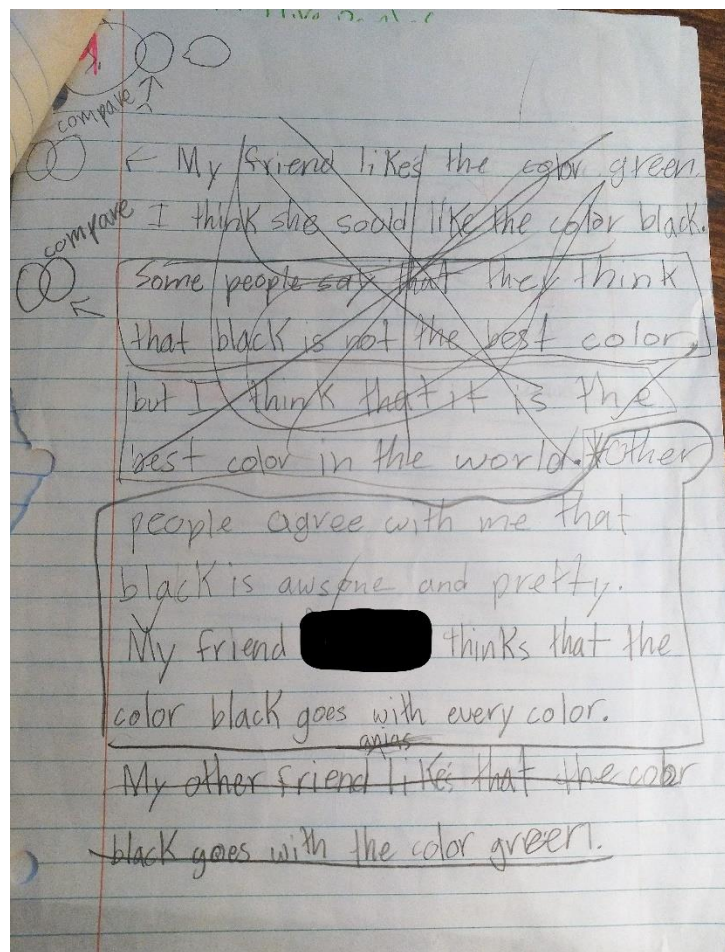 compare
← My friend likes the color green.
compare
I think she soold like the color black.
Some people say that they think
that black is not the best color
but I think that it is the
best color in the world. Other
people agree with me that
black is awsone and pretty.
My friend thinks that the
color black goes with every color.
My other friend likes that the color
black goes with the color green.